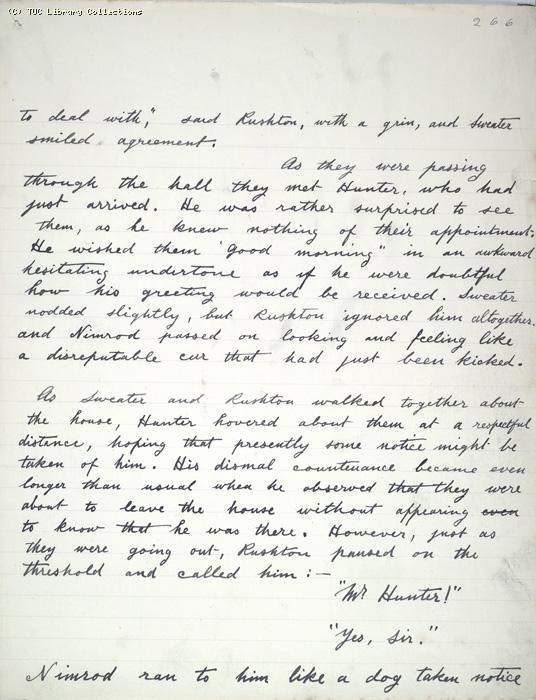 (C) TUC Library Collections
266
to deal with," said Rushton, with a grin, and Sweater
smiled agreement.
As they were passing
through the hall they met Hunter, who had
just arrived. He was rather surprised to see
them, as he knew nothing of their appointment;
He wished them "good morning" in an awkward
hesitating undertone as if he were doubtful
how his greeting would be received. Sweater
nodded slightly, but Rushton ignored him altogether.
and Nimrod passed on looking and feeling like
a disreputable cur that had just been kicked.
As Sweater and Rushton walked together about
the house, Hunter hovered about them at a respectful
distance, hoping that presently some notice might be
taken of him. His dismal countenance became even
longer than usual when he observed that they were
about to leave the house without appearing even
to know that he was there. However, just as
they were going out, Rushton paused on the
threshold and called him:-
"Mr Hunter!"
"Yes, sir."
Nimrod ran to him like a dog taken notice